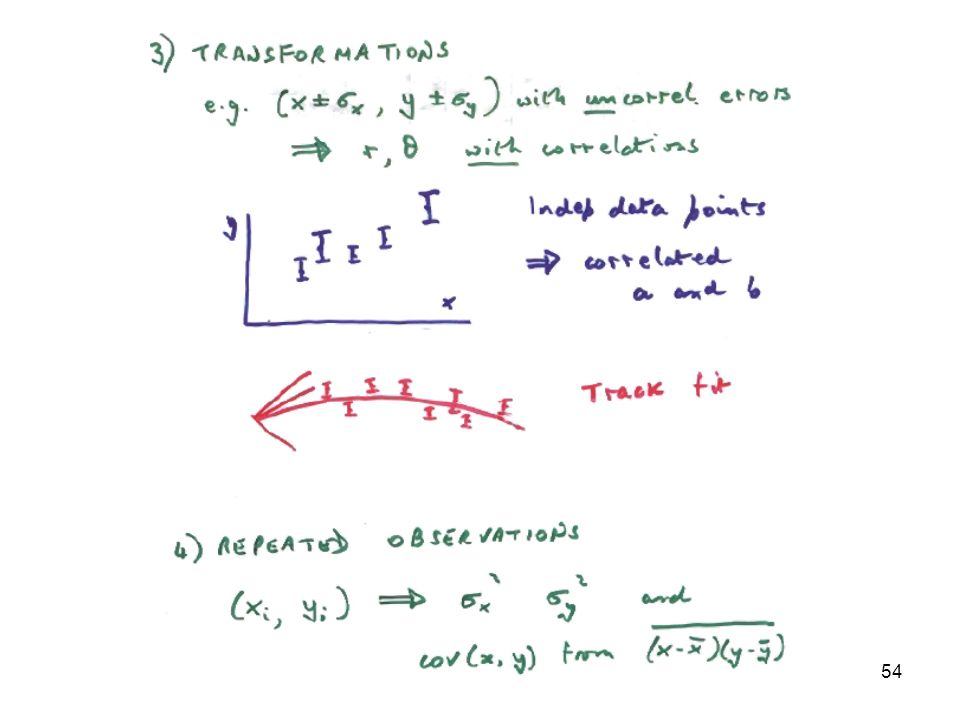 3) TRANSFORMATIONS
e.g. (x ± σx, y ± σy) with uncorrel. errors
⇒ r, θ with correlations
y
x
Indep data points
⇒ correlated
a and b
Track fit
4) REPEATED OBSERVATIONS
(xi, yi) ⇒ σx² σy² and
cov(x, y) from (x-x̄)(y-ȳ)
54